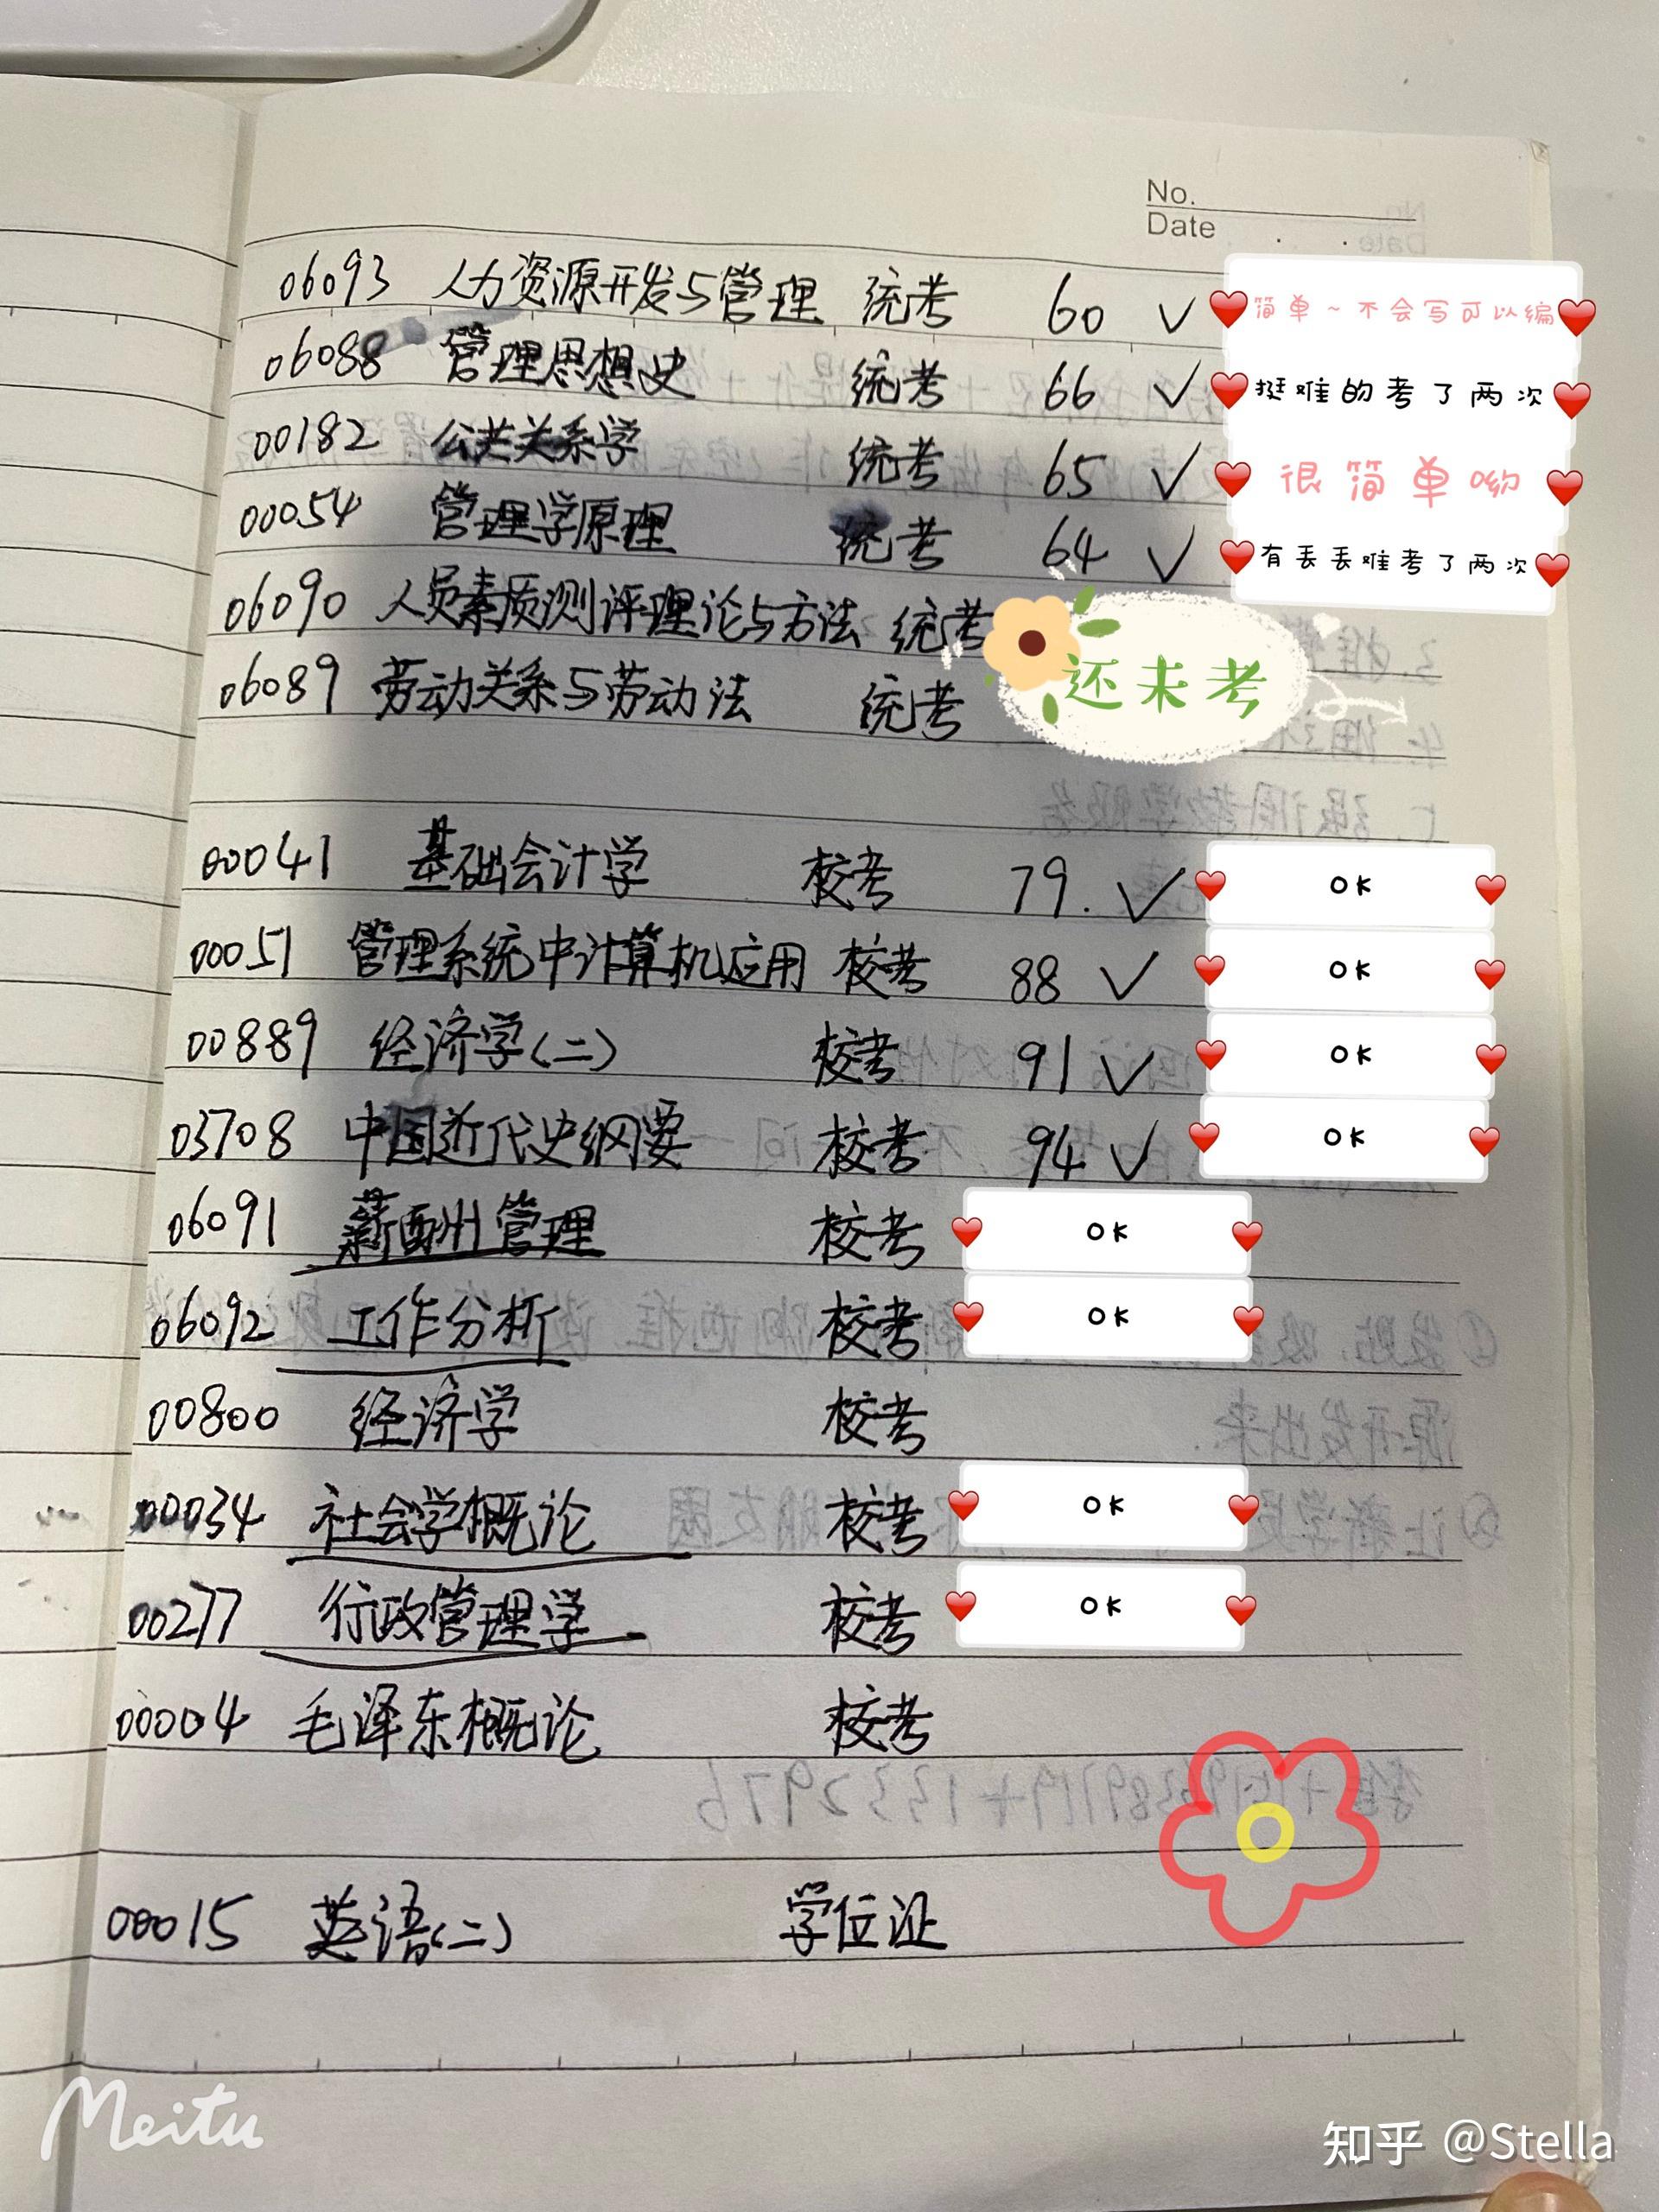 No.
Date
06093 人力资源开发与管理 统考 60 ✓ 简单~不会写可以编
06088 管理思想史 统考 66 ✓ 挺难的考了两次
00182 公共关系学 统考 65 ✓ 很简单哟
00054 管理学原理 统考 64 ✓ 有丢丢难考了两次
06090 人员素质测评理论与方法 统考
还未考
06089 劳动关系与劳动法 统考
00041 基础会计学 校考 79. ✓ OK
00051 管理系统中计算机应用 校考 88 ✓ OK
00889 经济学(二) 校考 91 ✓ OK
03708 中国近代史纲要 校考 94 ✓ OK
06091 薪酬管理 校考 OK
06092 工作分析 校考 OK
00800 经济学 校考
00034 社会学概论 校考 OK
00277 行政管理学 校考 OK
00004 毛泽东概论 校考
00015 英语(二) 学位证
Meitu
知乎 @Stella